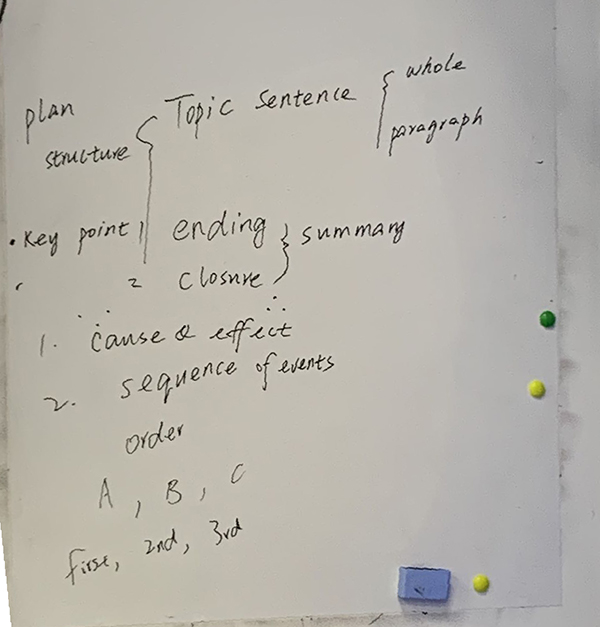 plan
structure
Topic sentence
whole
paragraph
• Key point 1
2
ending
closure
summary
1. ∵ cause & effect ∴
2. sequence of events
order
A, B, C
first, 2nd, 3rd